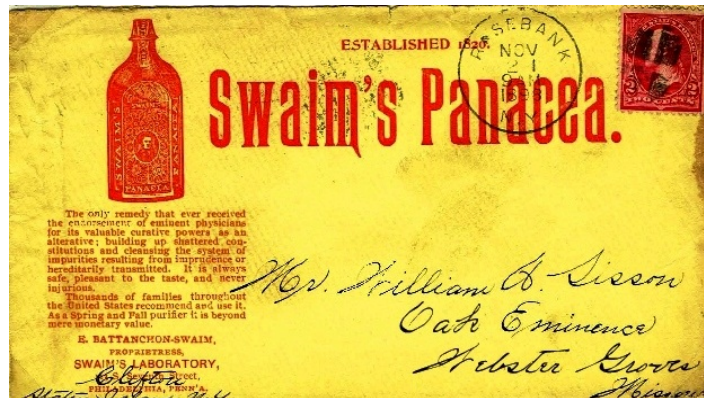 ESTABLISHED 1820.
Swaim's Panacea.
ROSEBANK
NOV
21
9 AM
1898
N.Y.
2 2
TWO CENTS
SWAIM'S
PANACEA
PANACEA
The only remedy that ever received
the endorsement of eminent physicians
for its valuable curative powers as an
alterative; building up shattered con-
stitutions and cleansing the system of
impurities resulting from imprudence or
hereditarily transmitted. It is always
safe, pleasant to the taste, and never
injurious.
Thousands of families throughout
the United States recommend and use it.
As a Spring and Fall purifier it is beyond
mere monetary value.
E. BATTANCHON-SWAIM,
PROPRIETRESS,
SWAIM'S LABORATORY,
Seventh Street,
Clifton
PHILADELPHIA, PENN'A.
Mr. William A. Sisson
Oak Eminence
Webster Groves